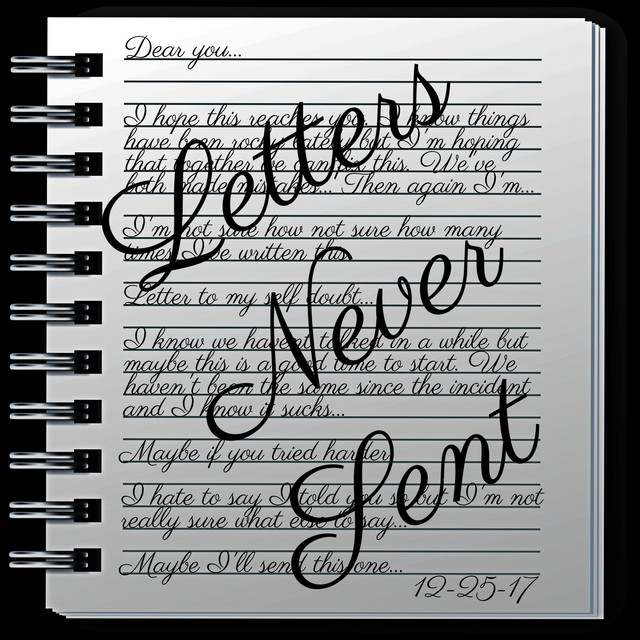 Dear you...
I hope this reaches you. I know things
have been rocky lately but I'm hoping
that together we can fix this. We've
both made mistakes... Then again I'm...
I'm not sure how not sure how many
times I've written this
Letter to my self doubt...
I know we haven't talked in a while but
maybe this is a good time to start. We
haven't been the same since the incident
and I know it sucks...
Maybe if you tried harder
I hate to say I told you so but I'm not
really sure what else to say...
Maybe I'll send this one...
12-25-17
Letters
Never
Sent